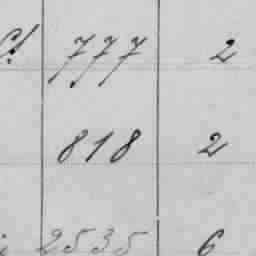 777 2
818 2
2535 6